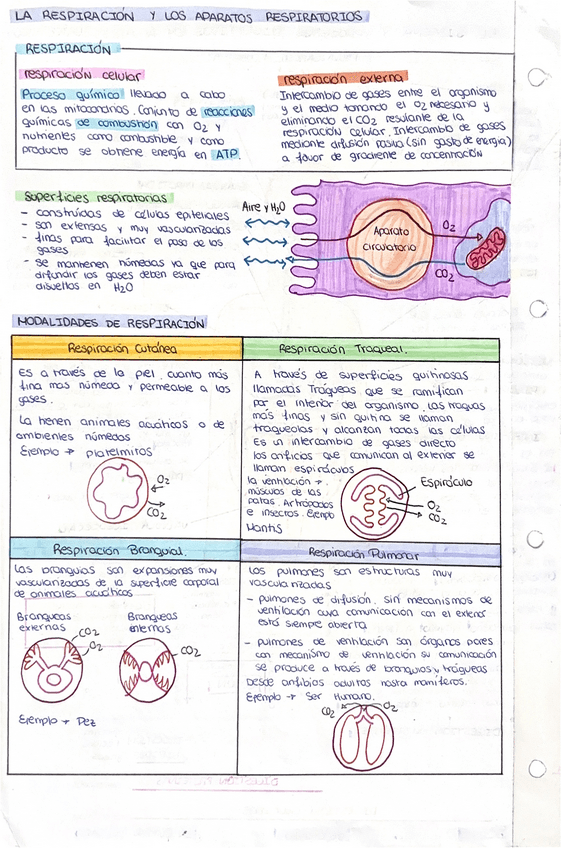 LA RESPIRACIÓN Y LOS APARATOS RESPIRATORIOS
RESPIRACIÓN
respiración celular
Proceso químico llevado a cabo
en las mitocondrias. Conjunto de reacciones
químicas de combustión con O2 y
nutrientes como combustible y como
producto se obtiene energía en ATP.
respiración externa
Intercambio de gases entre el organismo
y el medio tomando el O2 necesario y
eliminando el CO2 resulante de la
respiración celular. Intercambio de gases
mediante difusión pasiva (sin gasto de energía)
a favor de gradiente de concentración
Superficies respiratorias
- construidas de células epiteliales
- son extensas y muy vascularizadas
- finas para facilitar el paso de los
gases
- se mantienen húmedas ya que para
difundir los gases deben estar
disueltos en H2O
Aire y H2O
Aparato
circulatorio
O2
CO2
MODALIDADES DE RESPIRACIÓN
Respiración Cutánea
Es a través de la piel, cuanto más
fina mas húmeda y permeable a los
gases.
La tienen animales acuáticos o de
ambientes húmedos
Ejemplo → platelmitos
O2
CO2
Respiración Traqueal.
A través de superficies quitinosas
llamadas Tráqueas que se ramifican
por el interior del organismo. Las traqueas
más finas y sin quitina se llaman
traqueolas y alcanzan todas las células
Es un intercambio de gases directo
los orificios que comunican al exterior se
llaman espiráculos
la ventilación →
músculos de las
patas. Artrópodos
e insectos. Ejemplo
Mantis
Espiráculo
O2
CO2
Respiración Branquial.
Las branquias son expansiones muy
vascularizadas de la superficie corporal
de animales acuáticos
Branqueas
externas
CO2
O2
Branqueas
internas
CO2
Ejemplo → Pez
Respiración Pulmonar
Los pulmones son estructuras muy
vascularizadas
- pulmones de difusión, sin mecanismos de
ventilación cuya comunicación con el exterior
está siempre abierta
- pulmones de ventilación son órganos pares
con mecanismo de ventilación su comunicación
se produce a través de bronquios y tráqueas
Desde anfibios adultos hasta mamíferos.
Ejemplo → Ser Humano.
CO2
O2